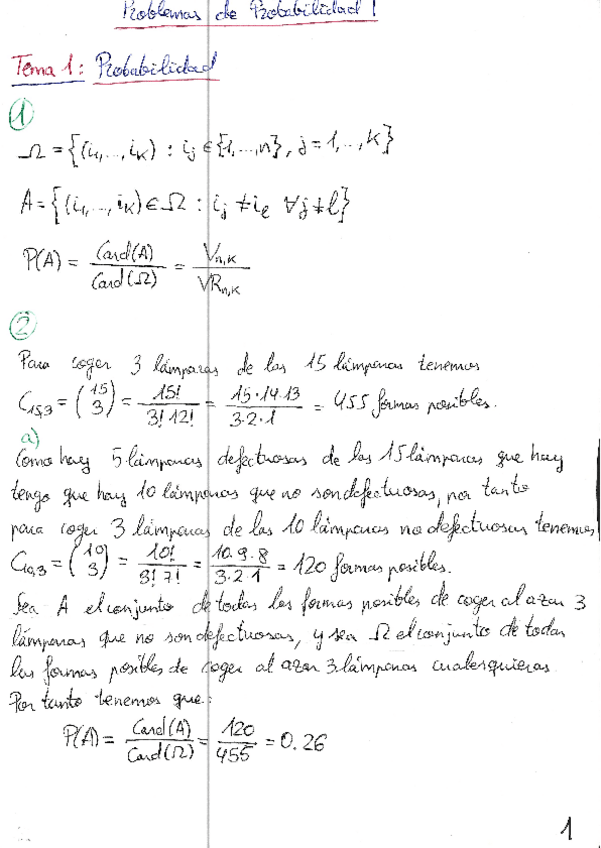 Problemas de Probabilidad 1
Tema 1: Probabilidad
1
Ω = {(i₁,...,iₖ) : iⱼ ∈ {1,...,n}, j = 1,...,k}
A = {(i₁,...,iₖ) ∈ Ω : iⱼ ≠ iₗ ∀j ≠ l}
P(A) = Card(A)/Card(Ω) = Vₙ,ₖ/VRₙ,ₖ
2
Para coger 3 lámparas de las 15 lámparas tenemos
C₁₅,₃ = (15 3) = 15!/3! 12! = 15·14·13/3·2·1 = 455 formas posibles.
a)
Como hay 5 lámparas defectuosas de las 15 lámparas que hay
tengo que hay 10 lámparas que no son defectuosas, por tanto
para coger 3 lámparas de las 10 lámparas no defectuosas tenemos
C₁₀,₃ = (10 3) = 10!/3! 7! = 10·9·8/3·2·1 = 120 formas posibles.
Sea A el conjunto de todas las formas posibles de coger al azar 3
lámparas que no son defectuosas, y sea Ω el conjunto de todas
las formas posibles de coger al azar 3 lámparas cualesquieras.
Por tanto tenemos que:
P(A) = Card(A)/Card(Ω) = 120/455 = 0.26
1